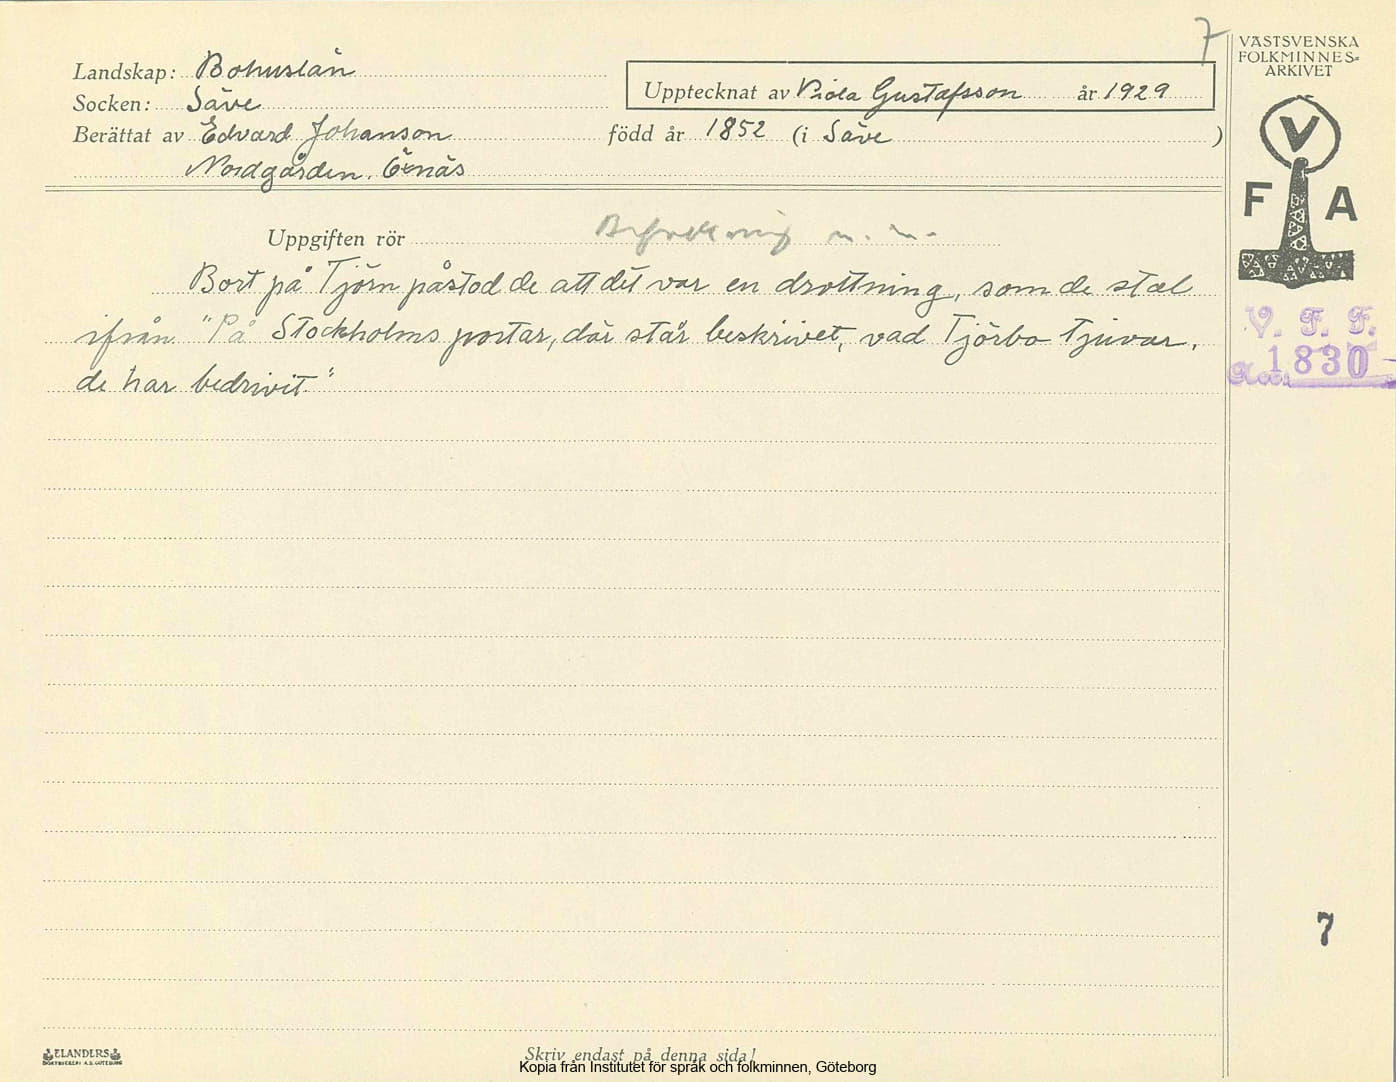 7
VÄSTSVENSKA
FOLKMINNES-
ARKIVET
Landskap: Bohuslän
Socken: Säve
Upptecknat av Viola Gustafsson år 1929
Berättat av Edvard Johanson född år 1852 (i Säve )
Nordgården, Öxnäs
V
F A
Uppgiften rör Befolkning m. m.
Bort på Tjörn påstod de att det var en drottning, som de stal
ifrån "På Stockholms portar, där står beskrivet, vad Tjörbo tjuvar,
de har bedrivit."
V. F. F.
Acc. 1830
7
ELANDERS
BOKTRYCKERI A.B. GÖTEBORG
Skriv endast på denna sida!
Kopia från Institutet för språk och folkminnen, Göteborg